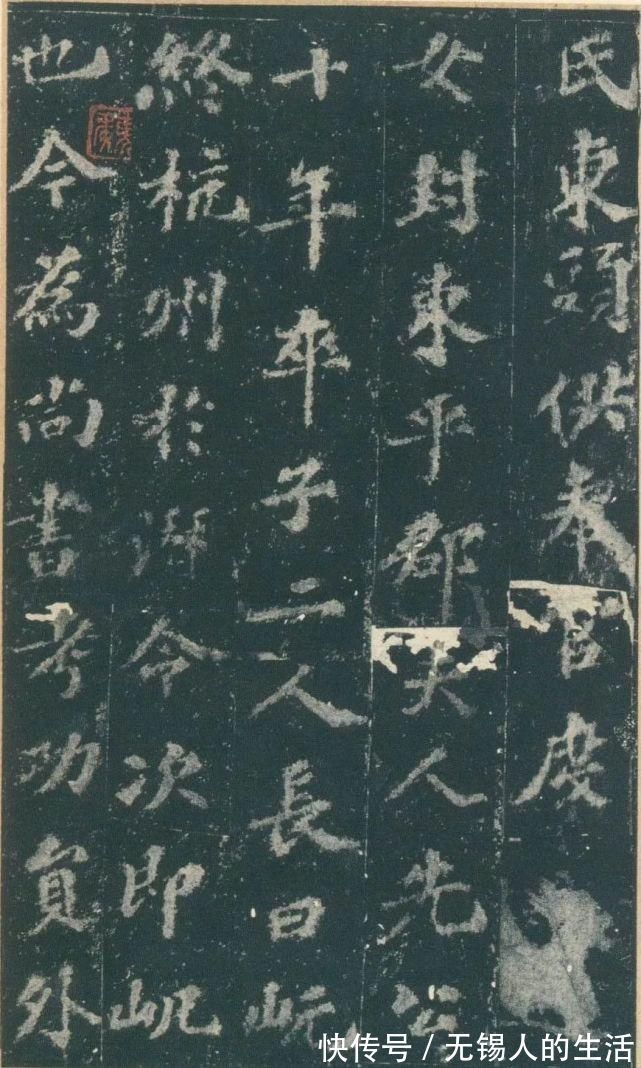 氏東頭供奉官度
女封東平郡夫人先公
十年卒子二人長曰岏
終杭州於潛令次即屼
也今為尚書考功員外
快传号 / 无锡人的生活